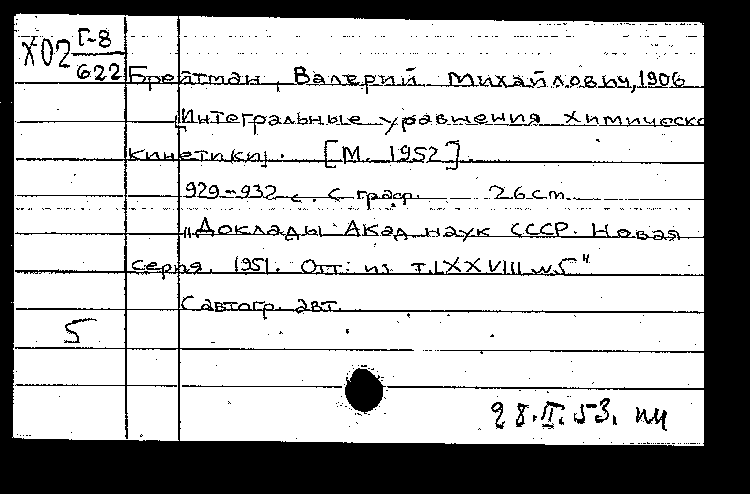 Х02 Г-8
622
Брейтман, Валерий Михайлович, 1906
[Интегральные уравнения химическо
кинетики]. [М. 1952].
929-932 с. с граф. 26 cm.
„Доклады Акад. наук СССР. Новая
серия. 1951. Отт: из т. LXXVIII №5"
С автогр. авт.
5
28.II.53.